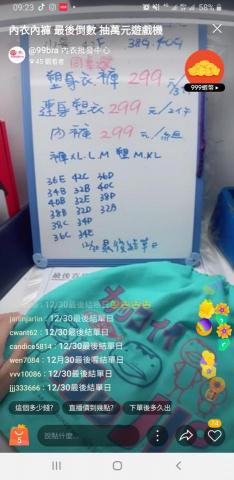 09:23
4G 58%
內衣內褲 最後倒數 抽萬元遊戲機
@99bra 內衣批發中心
45 觀看者
389.409
999蝦幣
塑身衣.褲 299 元/
連身塑衣 299 元/2件
內褲 299 元/
褲XL.L.M 塑M.XL
36E 42C 46D
34B 32B 40C
40B 32E 38D
38B 32D 32A
38C 34D
36C 34E
12/30最後結單日
janinjarlin : 12/30最後結單日
cwant62 : 12/30最後結單日
candice5814 : 12/30最後結單日
wen7084 : 12月30最後喔結單日
vvv10086 : 12/30最後結單日
jjj333666 : 12/30最後結單日
這個多少錢?
直播價到幾點?
下單後多久出
5
說點什麼...
14